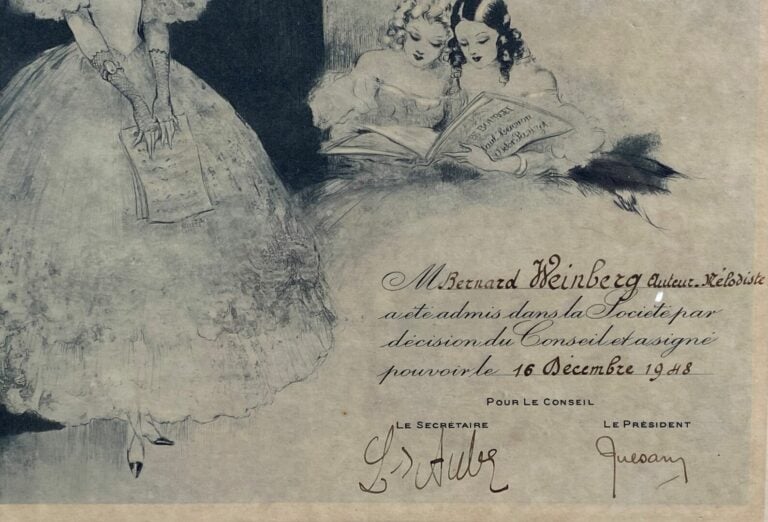 E. BOURGET
Paul Henrion
Victor Parizot
M Bernard Weinberg Auteur-Mélodiste
a été admis dans la Société par
décision du Conseil et a signé
pouvoir le 16 Décembre 1948
POUR LE CONSEIL
LE SECRÉTAIRE LE PRÉSIDENT